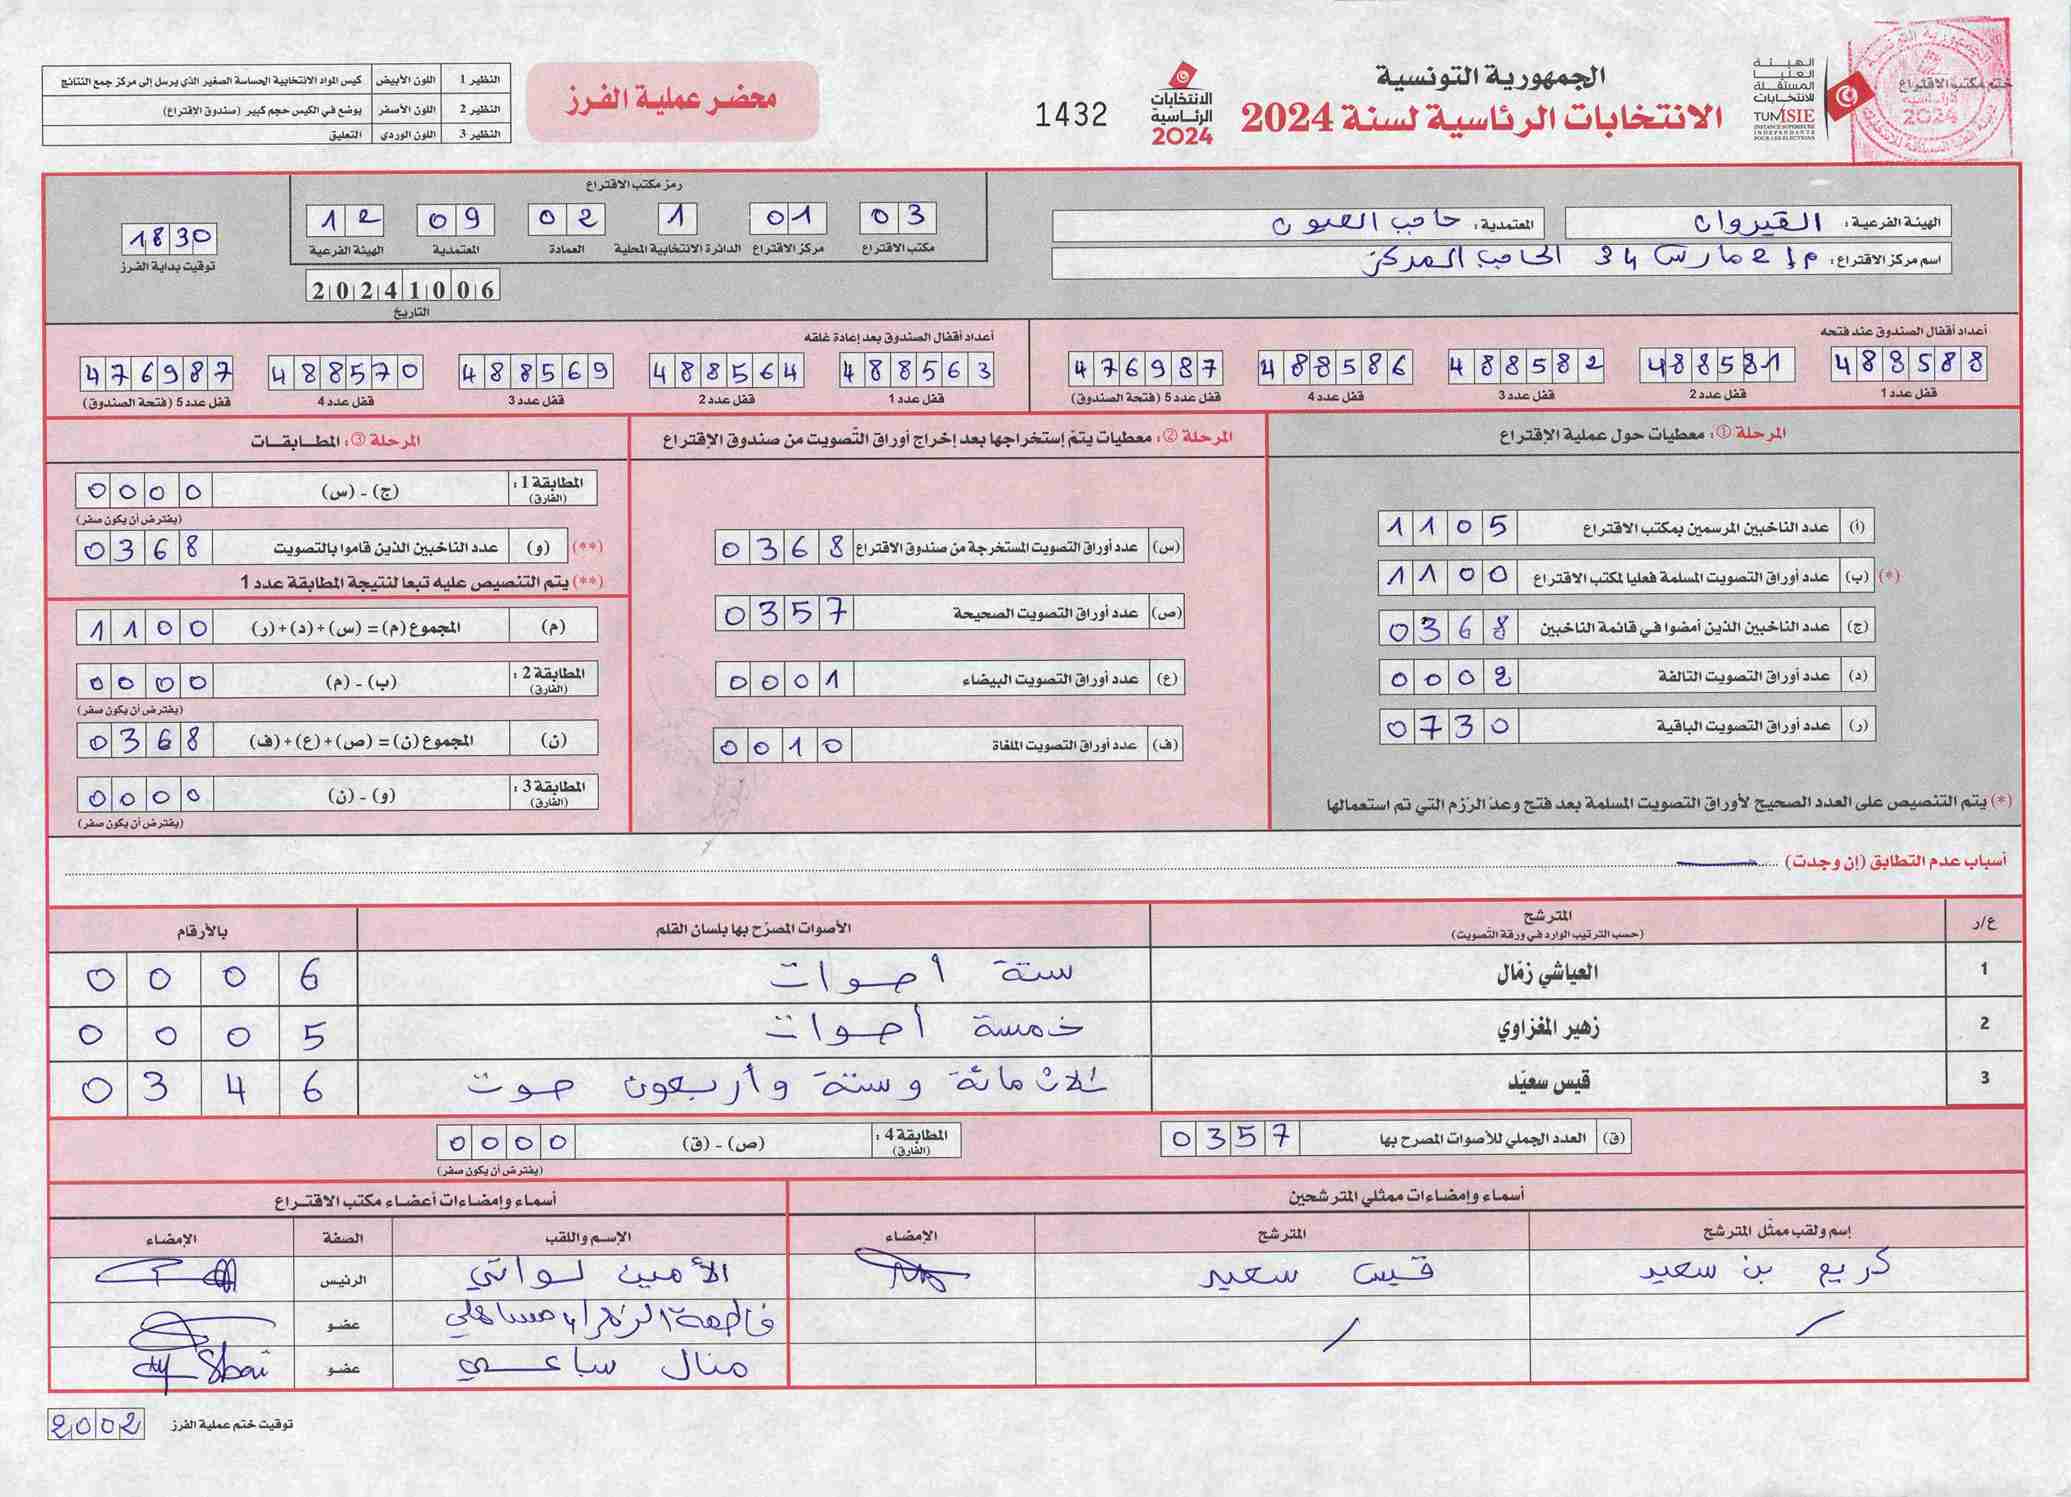 ختم مكتب الاقتراع
الهيئة
العليا
المستقلة
للانتخابات
TUNISIE
INSTANCE SUPÉRIEURE
INDÉPENDANTE
POUR LES ÉLECTIONS
الجمهورية التونسية
الانتخابات الرئاسية لسنة 2024
الانتخابات
الرئاسية
2024
1432
محضر عملية الفرز
النظير 1 اللون الأبيض كيس المواد الانتخابية الحساسة الصغير الذي يرسل إلى مركز جمع النتائج
النظير 2 اللون الأصفر يوضع في الكيس حجم كبير (صندوق الإقتراع)
النظير 3 اللون الوردي التعليق
الهيئة الفرعية: القيروان المعتمدية: حاجب العيون
اسم مركز الاقتراع: م إ 2 مارس 34 الحاجب المركز
رمز مكتب الاقتراع
03 01 1 02 09 12
مكتب الاقتراع مركز الاقتراع الدائرة الانتخابية المحلية العمادة المعتمدية الهيئة الفرعية
20241006
التاريخ
1830
توقيت بداية الفرز
أعداد أقفال الصندوق عند فتحه
488588 488581 488582 488586 476987
قفل عدد 1 قفل عدد 2 قفل عدد 3 قفل عدد 4 قفل عدد 5 (فتحة الصندوق)
أعداد أقفال الصندوق بعد إعادة غلقه
488563 488564 488569 488570 476987
قفل عدد 1 قفل عدد 2 قفل عدد 3 قفل عدد 4 قفل عدد 5 (فتحة الصندوق)
المرحلة ①: معطيات حول عملية الإقتراع
(أ) عدد الناخبين المرسمين بمكتب الاقتراع 1105
(*) (ب) عدد أوراق التصويت المسلمة فعليا لمكتب الاقتراع 1100
(ج) عدد الناخبين الذين أمضوا في قائمة الناخبين 0368
(د) عدد أوراق التصويت التالفة 0002
(ر) عدد أوراق التصويت الباقية 0730
(*) يتم التنصيص على العدد الصحيح لأوراق التصويت المسلمة بعد فتح وعدّ الرّزم التي تم استعمالها
المرحلة ②: معطيات يتمّ إستخراجها بعد إخراج أوراق التّصويت من صندوق الإقتراع
(س) عدد أوراق التصويت المستخرجة من صندوق الاقتراع 0368
(ص) عدد أوراق التصويت الصحيحة 0357
(ع) عدد أوراق التصويت البيضاء 0001
(ف) عدد أوراق التصويت الملغاة 0010
المرحلة ③: المطابقات
المطابقة 1: (الفارق) (ج) - (س) 0000
(يفترض أن يكون صفر)
(**) (و) عدد الناخبين الذين قاموا بالتصويت 0368
(**) يتم التنصيص عليه تبعا لنتيجة المطابقة عدد 1
(م) المجموع (م) = (س)+(د)+(ر) 1100
المطابقة 2: (الفارق) (ب) - (م) 0000
(يفترض أن يكون صفر)
(ن) المجموع (ن) = (ص)+(ع)+(ف) 0368
المطابقة 3: (الفارق) (و) - (ن) 0000
(يفترض أن يكون صفر)
أسباب عدم التطابق (إن وجدت)
ع/ر المترشح الأصوات المصرّح بها بلسان القلم بالأرقام
(حسب الترتيب الوارد في ورقة التّصويت)
1 العياشي زمّال ستة أصوات 0006
2 زهير المغزاوي خمسة أصوات 0005
3 قيس سعيّد ثلاث مائة وستة وأربعون صوت 0346
(ق) العدد الجملي للأصوات المصرح بها 0357
المطابقة 4: (الفارق) (ص) - (ق) 0000
(يفترض أن يكون صفر)
أسماء وإمضاءات ممثلي المترشحين
إسم ولقب ممثّل المترشح المترشح الإمضاء
كريم بن سعيد قيس سعيد
أسماء وإمضاءات أعضاء مكتب الاقتراع
الإسم واللقب الصفة الإمضاء
الأمين لواتي الرئيس
فاطمة الزهراء مساهلي عضو
منال سباعي عضو Sbai
توقيت ختم عملية الفرز 2002